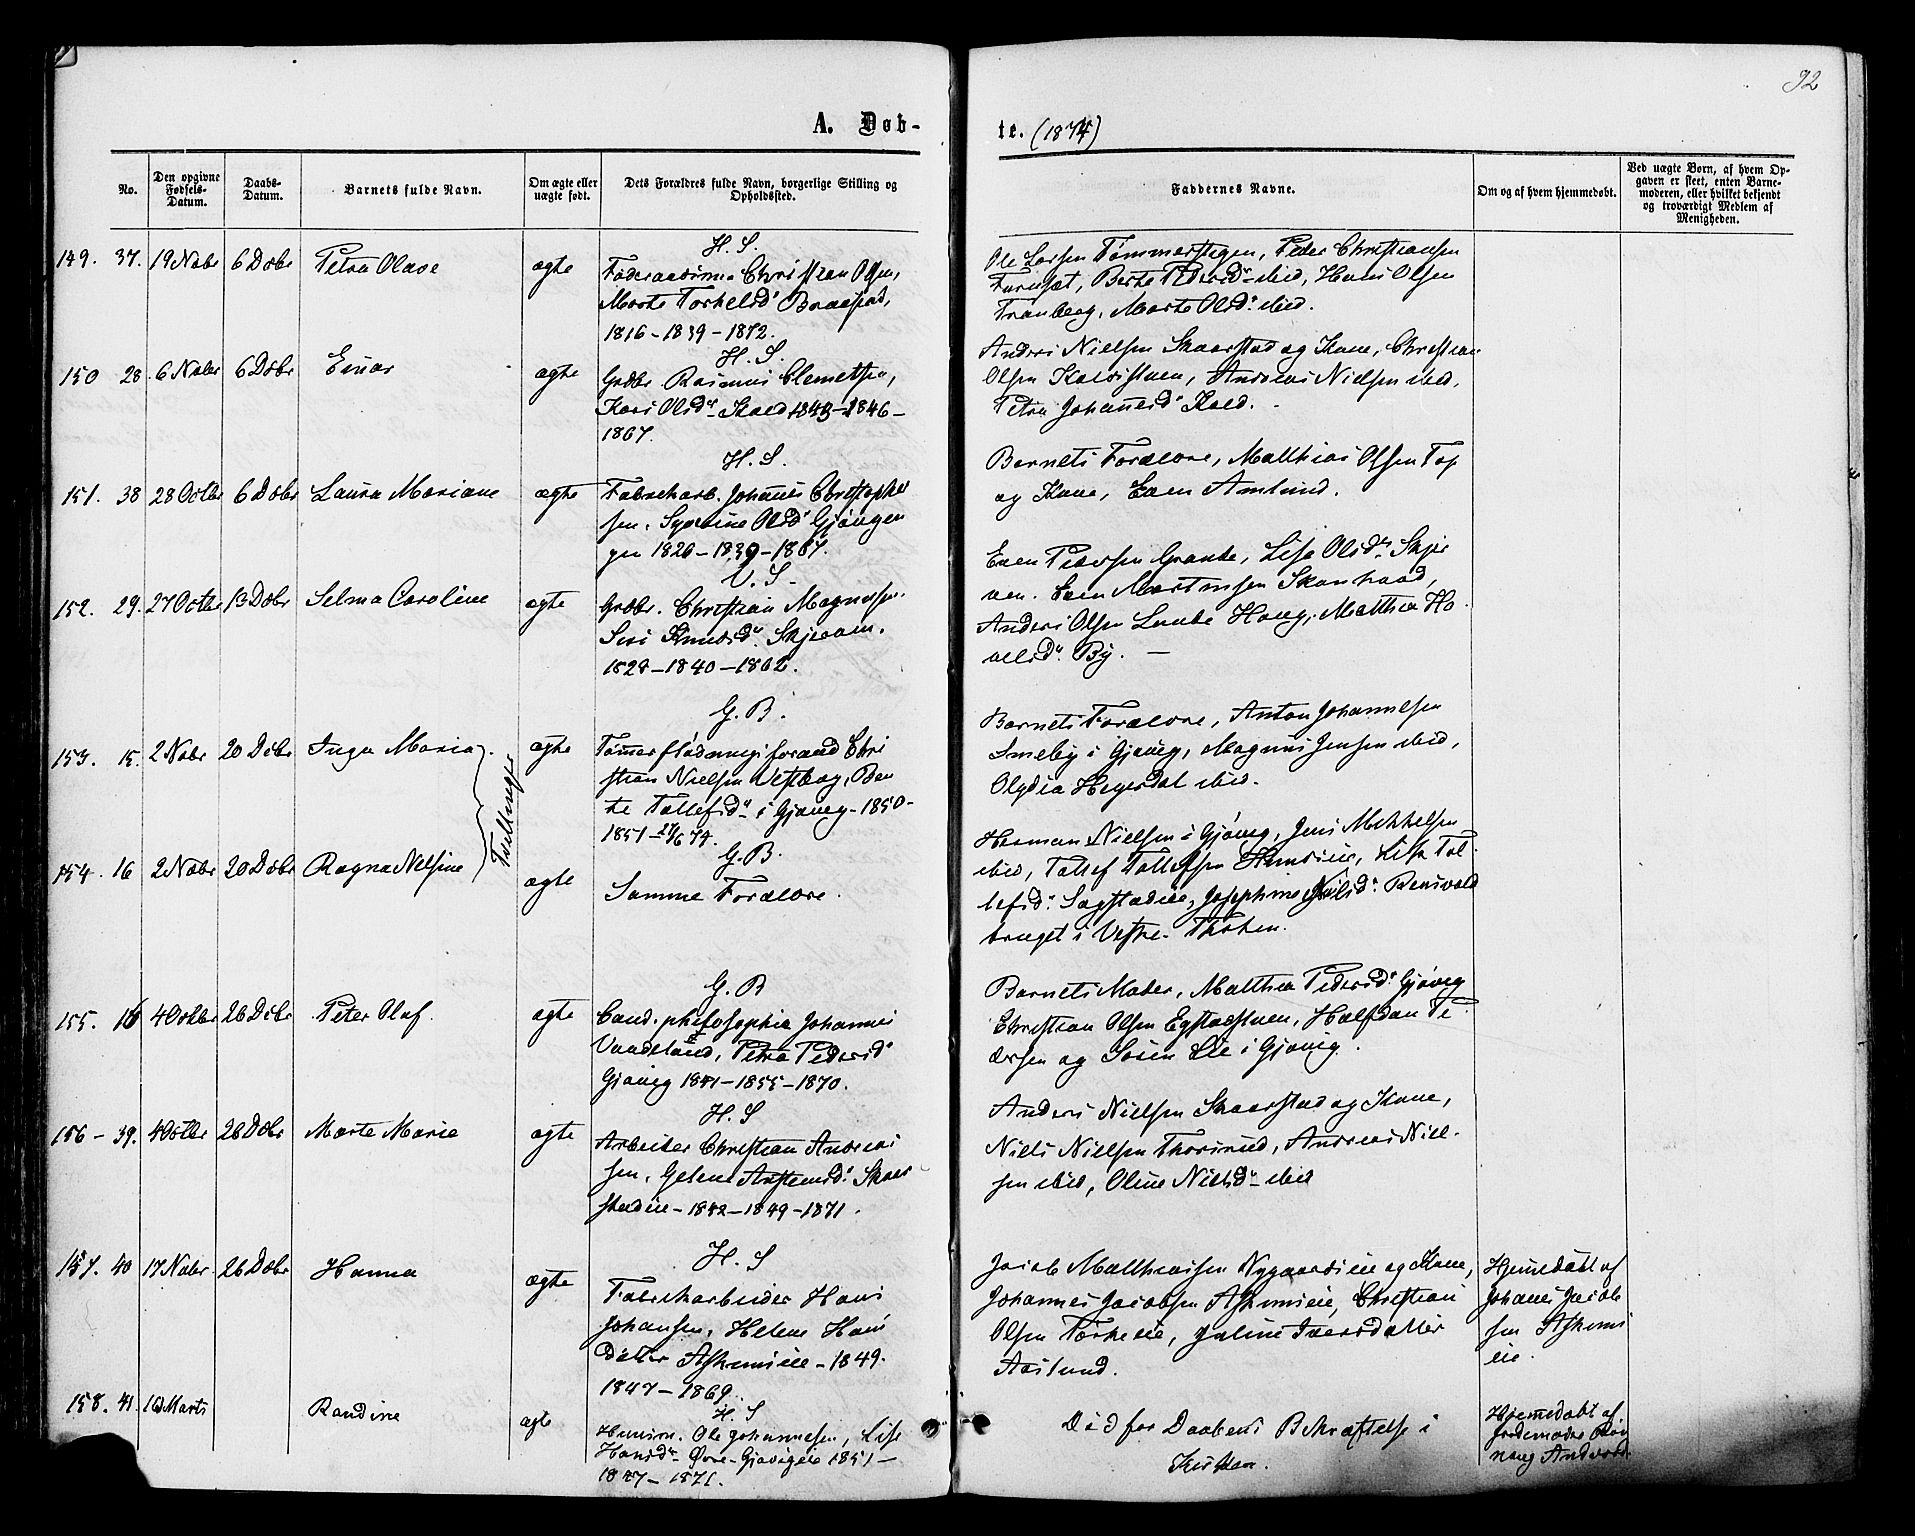 92
A. Døb-
te. (1874)
No.
Den opgivne Fødsels-Datum.
Daabs-Datum.
Barnets fulde Navn.
Om ægte eller uægte født.
Dets Forældres fulde Navn, borgerlige Stilling og Opholdssted.
Faddernes Navne.
Om og af hvem hjemmedøbt.
Ved uægte Børn, af hvem Opgaven er skeet, enten Barnemoderen, eller hvilket bekjendt og troværdigt Medlem af Menigheden.
149. 37. 19 Nobr 6 Dcbr Petra Olave ægte
H. S.
Christian Olsen,
Marte Torkelsd
1816 - 1839 - 1872.
Ole Larsen Tømmerstigen, Peder Christiansen
Furuset, Berte Pedersd. ibid, Hans Olsen
Tranberg, Marte Olsd. ibid.
150 28. 6 Nobr 6 Dcbr Einar ægte
H. S.
Grdbr. Rasmus Clemetsen,
Kari Olsd. 1843 - 1846 -
1867.
Anders Nielsen Skaarstad og Kone, Christian
Olsen Andreas Nielsen ibid,
Petra Johannesd.
151. 38 28 Octbr 6 Dcbr Laura Mariane ægte
H. S.
Fabrikarb. Johannes Christopher
sen, Olsd.
1839 - 1867.
Barnets Forældre, Matthias Olsen
og Kone, Even Amlund.
152. 29. 27 Octbr 13 Dcbr Selma Caroline ægte
V. S.
Grdbr. Christian Magnussen,
Siri Knudsd. Skjerven.
1828 - 1840 - 1862.
Even Pedersen Grande, Lise Olsd. Skjer
ven. Even Martinsen
Anders Olsen Haug, Matthea Ha
By. —
153. 15. 2 Nobr 20 Dcbr Inga Maria Tvillinger ægte
G. B.
Chri
stian Nielsen Vestby, Ben
te Tollefsd. i Gjøvig - 1850 -
1851 - 27/6 74.
Barnets Forældre, Anton Johannesen
Smeby i Gjøvig, Magnus Jensen ibid,
Olydia Hegerdal ibid.
154. 16 2 Nobr 20 Dcbr Ragna Nelsine ægte
G. B.
Samme Forældre.
Herman Nielsen i Gjøvig, Jens Mikkelsen
ibid, Tollef Tollefsen Lise Tol
lefsd. Sagstadeie, Josephine Nielsd.
bruget i Vestre Thoten.
155. 16 4 Octbr 26 Dcbr Peter Olaf ægte
G. B
Cand. philosophie Johannes
Petra Pedersd
Gjøvig 1841 - 1855 - 1870.
Barnets Moder, Matthea Pedersd. Gjøvig
Christian Olsen Egstadstuen, Halfdan Pe
dersen og Lie i Gjøvig.
156 - 39. 4 Octbr 26 Dcbr Marte Marie ægte
H. S
Arbeider Christian Andreas
sen, Gelene Skaar
stadeie - 1842 - 1849 - 1871.
Anders Nielsen Skaarstad og Kone,
Niels Nielsen Thorsrud, Andreas Niel-
sen ibid, Oline Nielsd. ibid
157. 40 17 Nobr. 26 Dcbr Hanna ægte
H. S
Fabrikarbeider Hans
Johansen, Helene Hans
datter Askimseie - 1849.
1847 - 1869.
Jacob Matthiassen Nygaardseie og Kone,
Johannes Jacobsen Askimseie, Christian
Olsen Torkeseie, Juline Iversdatter
Aaslund.
Hjemedøbt af
Johanes Jacob
sen Askims
eie.
158. 41. 16 Marts Randine ægte
H. S
Husm. Ole Johannesen, Lise
Hansd. Øvre-Gjøvigeie 1851 -
1847 - 1871.
Død før Daabens Bekræftelse i
Kirken.
Hjemedøbt af
Jordemoder